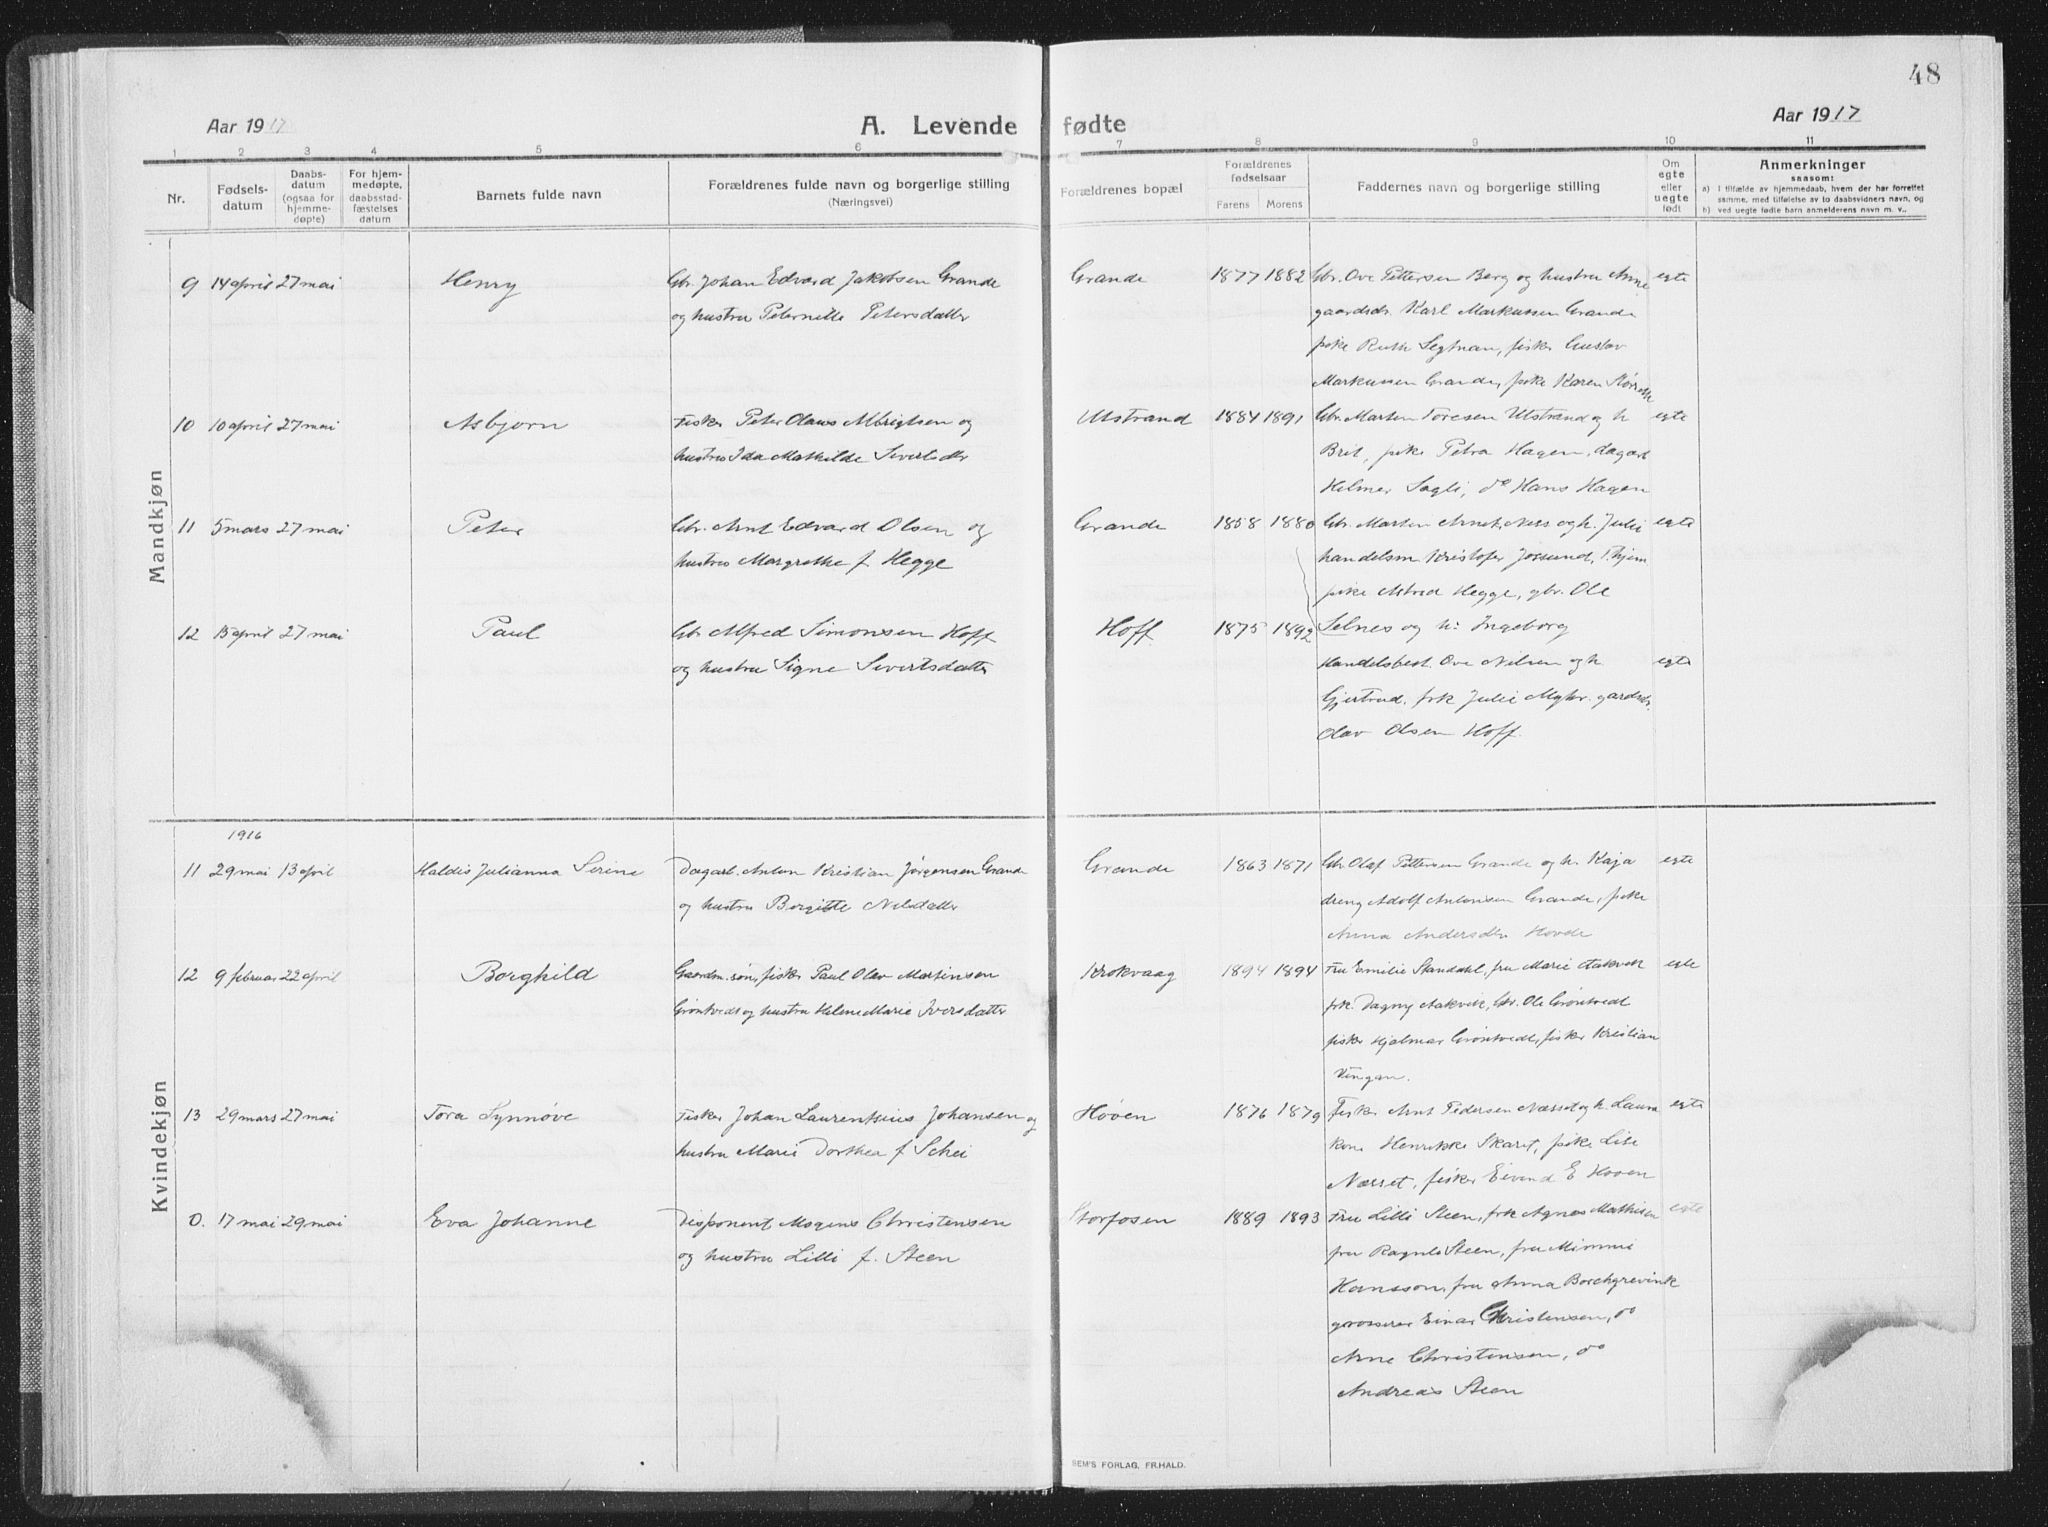 48
Aar 1917
A. Levende fødte
Aar 1917
1 2 3 4 5 6 7 8 9 10 11
Nr.
Fødsels-
datum
Daabs-
datum
(ogsaa for
hjemme-
døpte)
For hjem-
medøpte,
daabsstad-
fæstelses
datum
Barnets fulde navn
Forældrenes fulde navn og borgerlige stilling
(Næringsvei)
Forældrenes bopæl
Forældrenes
fødselsaar
Farens Morens
Faddernes navn og borgerlige stilling
Om
egte
eller
uegte
født
Anmerkninger
saasom:
a) I tilfælde av hjemmedaab, hvem der har forrettet
samme, med tilføielse av to daabsvidners navn, og
b) ved uegte fødte barn anmelderens navn m. v..
Mandkjøn
9 14 april 27 mai Henry Gbr. Johan Edvard Jakobsen Grande
og hustru Peternille Petersdatter
Grande 1877 1882 Gbr. Ove Pettersen Berg og hustru Anne egte
gaardsdr. Karl Markussen Grande
pike Ruth Segtnan, fisker Gustav
Markussen Grande, pike Karen
10 10 april 27 mai Asbjørn Fisker Peter Olaus Albrigtsen og
hustru Ida Mathilde Sivertsdtr
Utstrand 1884 1891 Gbr. Morten Toresen Utstrand og h egte
Brit, pike Petra Hagen, dagarb
Helmer Sagli, do Hans Hagen
11 5 mars 27 mai Peter Gbr. Arnt Edvard Olsen og
hustru Margrethe f. Hegge
Grande 1858 1880 Gbr. Morten Arnet, Ness og h. Julie egte
handelsm Kristofer Jøssund, T.hjem
pike Astrid Hegge, gbr. Ole
Selnes og h: Ingeborg
12 15 april 27 mai Paul Gbr Alfred Simonsen Hoff
og hustru Signe Sivertsdatter
Hoff 1875 1892
Handelsbest. Ove Nilsen og h egte
Gjertrud, frk Julie Myhr. gardsdr.
Olav Olsen Hoff.
Kvindekjøn
1916
11 29 mai 13 april Haldis Julianna Sirine Dagarb. Anton Kristian Jørgensen Grande
og hustru Bergitte Nelsdatter
Grande 1863 1871 Gbr. Olaf Pettersen Grande og h. Kaja egte
dreng Adolf Antonsen Grande, pike
Anna Andersdtr Hovde
12 9 februar 22 april Borghild Gaardm.søn, fisker Paul Olav Martinsen
Grøntvedt og hustru Helene Marie Iversdatter
Krokvaag 1894 1894 Fru Emilie Standahl, fru Marie Aakvik egte
frk. Dagny Aakvik, Gbr. Ole Grøntvedt
fisker Hjalmar Grøntvedt, fisker Kristian
Vingan.
13 29 mars 27 mai Tora Synnøve Fisker Johan Laurentsius Johansen og
hustru Marie Dorthea f Schei
Høven 1876 1879 Fisker Arnt Pedersen Nærset og h. Laura egte
kone Henrikke Skaret, pike Lise
Nærset, fisker Eivind E Hoven
0. 17 mai 29 mai Eva Johanne Disponent Mogens Christensen
og hustru Lilli f. Steen
Storfosen 1889 1893 Fru Lilli Steen, frk Agnes Mathisen egte
fru Ragnh Steen, fru Mimmi
Hansson, fru Anna Borchgrevink
grosserer Einar Christensen, do
Arne Christensen, do
Andreas Steen
SEM'S FORLAG, FR.HALD.